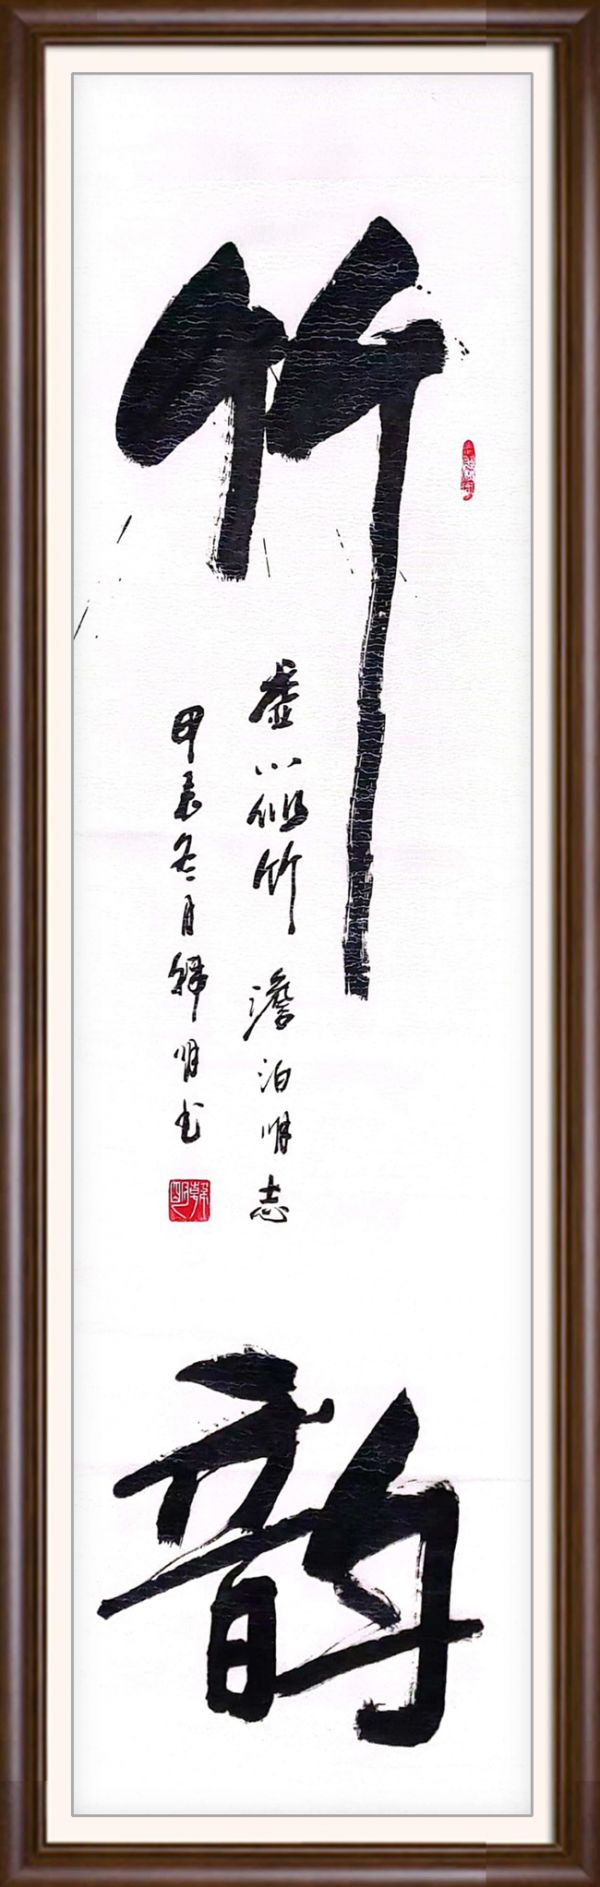 竹韵
虚心似竹 澹泊明志
甲辰冬月韩明书